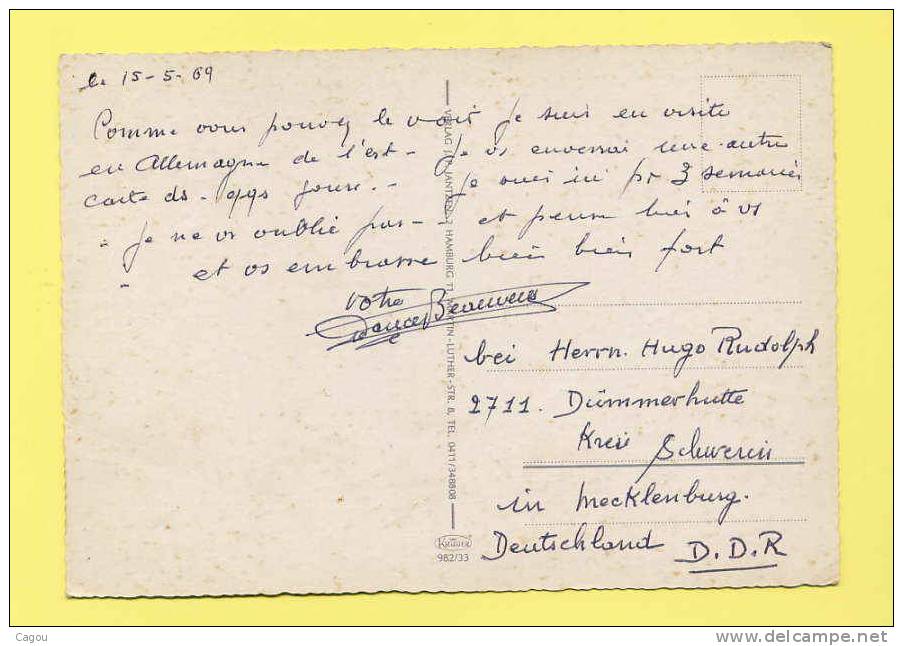 le 15-5-69
Comme vous pouvez le voir je suis en visite
en Allemagne de l'est - Je vs enverrai une autre
carte ds. qqs jours. - Je suis ici pr 3 semaines
- Je ne vs oublie pas - et pense bien à vs
- et vs embrasse bien bien fort
Votre
bei Herrn. Hugo Rudolph
2711. Dümmerhutte
Kreis Schwerin
in Mecklenburg.
Deutschland D.D.R
HAMBURG 1, MARTIN-LUTHER-STR. 8, TEL. 0411/348808
Krüger
982/33
Cagou
www.delcampe.net